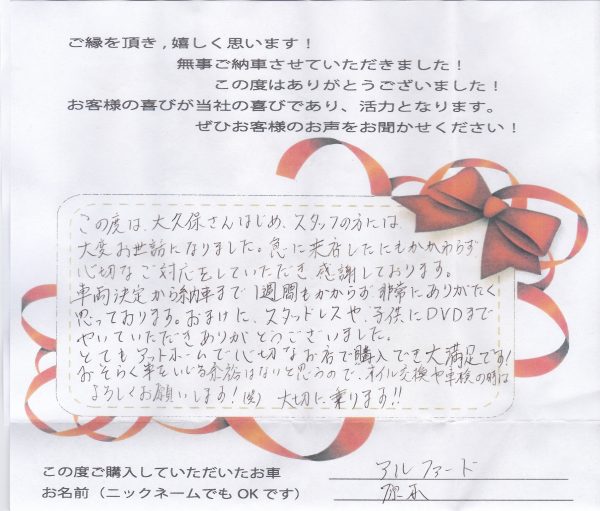 ご縁を頂き,嬉しく思います！
無事ご納車させていただきました！
この度はありがとうございました！
お客様の喜びが当社の喜びであり、活力となります。
ぜひお客様のお声をお聞かせください！
この度は、大久保さんはじめ、スタッフの方には
大変お世話になりました。急に来店したにもかかわらず
心切なご対応をしていただき感謝しております。
車両決定から納車まで1週間もかからず非常にありがたく
思っております。おまけに、スタッドレスや、子供にDVDまで
やいていただきありがとうございました。
とてもアットホームで心切なお店で購入でき大満足です!
おそらく車をいじる余裕はないと思うので、オイル交換や車検の時は
よろしくお願いします!(笑) 大切に乗ります!!
この度ご購入していただいたお車 アルファード
お名前（ニックネームでもOKです）